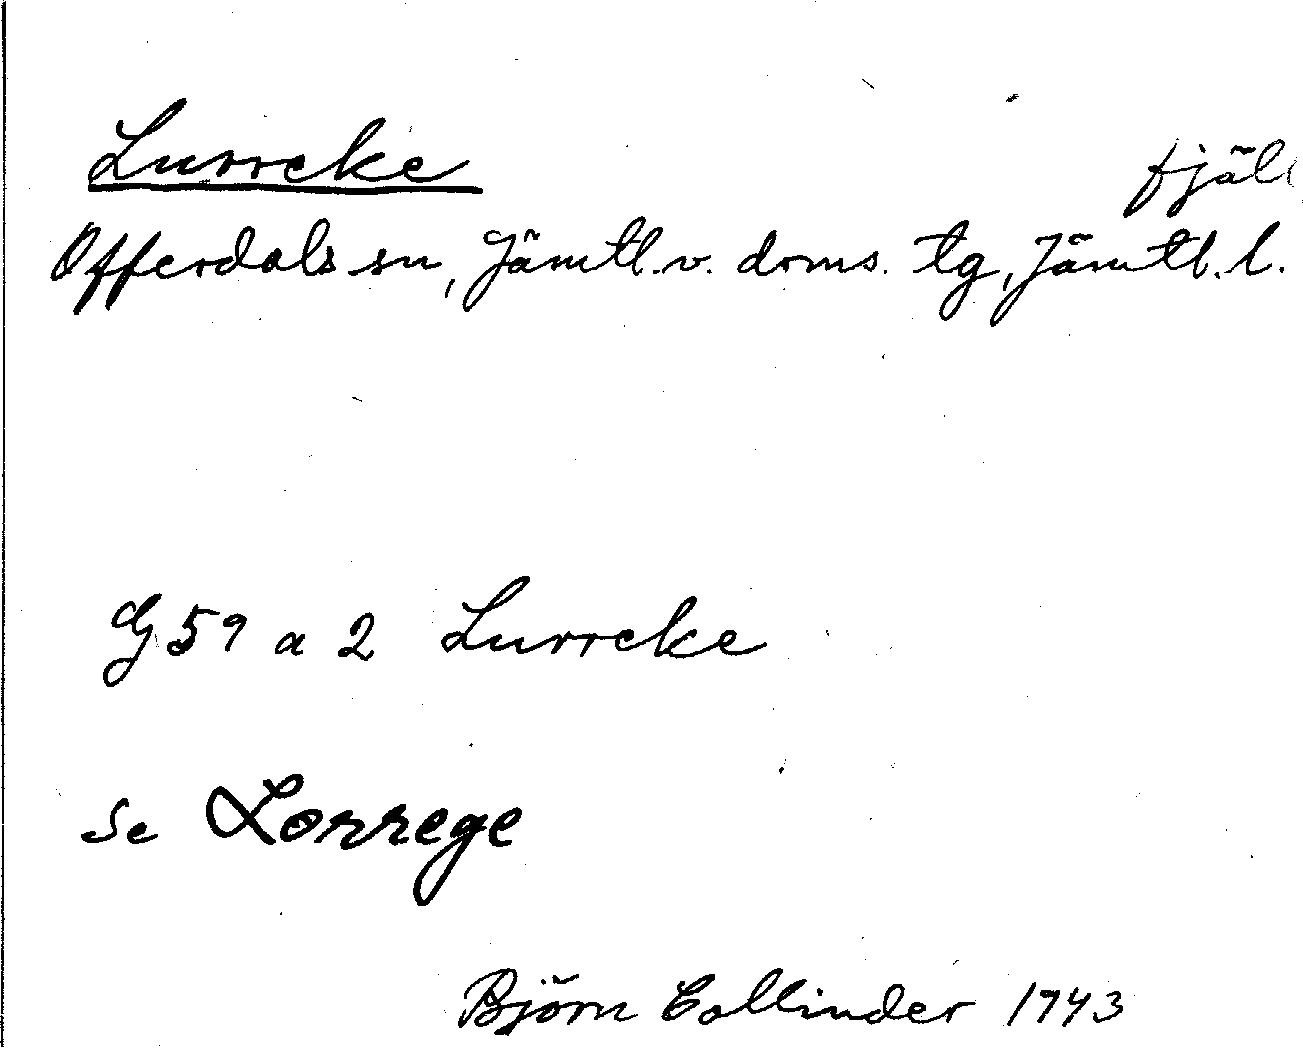 Lurreke fjäll
Offerdals sn, Jämtl. v. doms. tg, Jämtl. l.
G 59 a 2 Lurreke
se Lorrege
Björn Collinder 1943